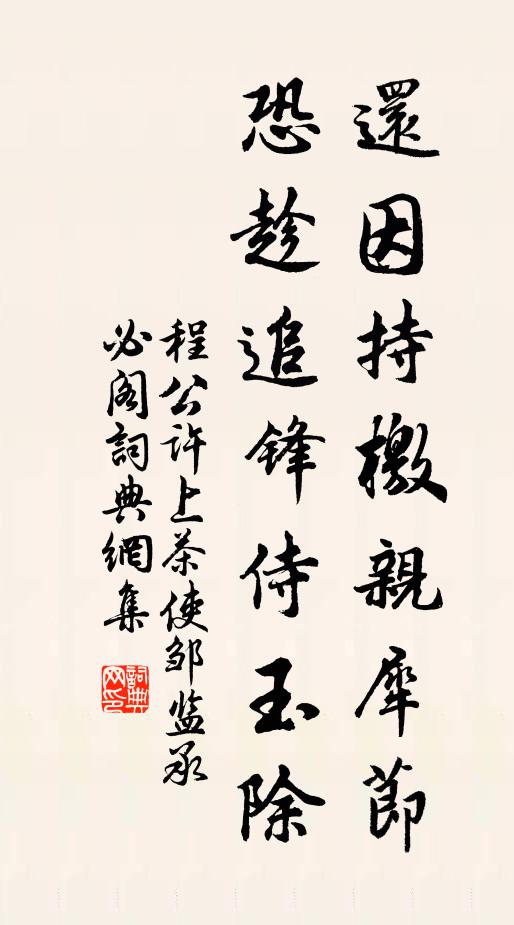 還因持檄親犀節
恐趁追鋒侍玉除
程公許上茶使邹监丞
必阁詞典網集
詞典
网印